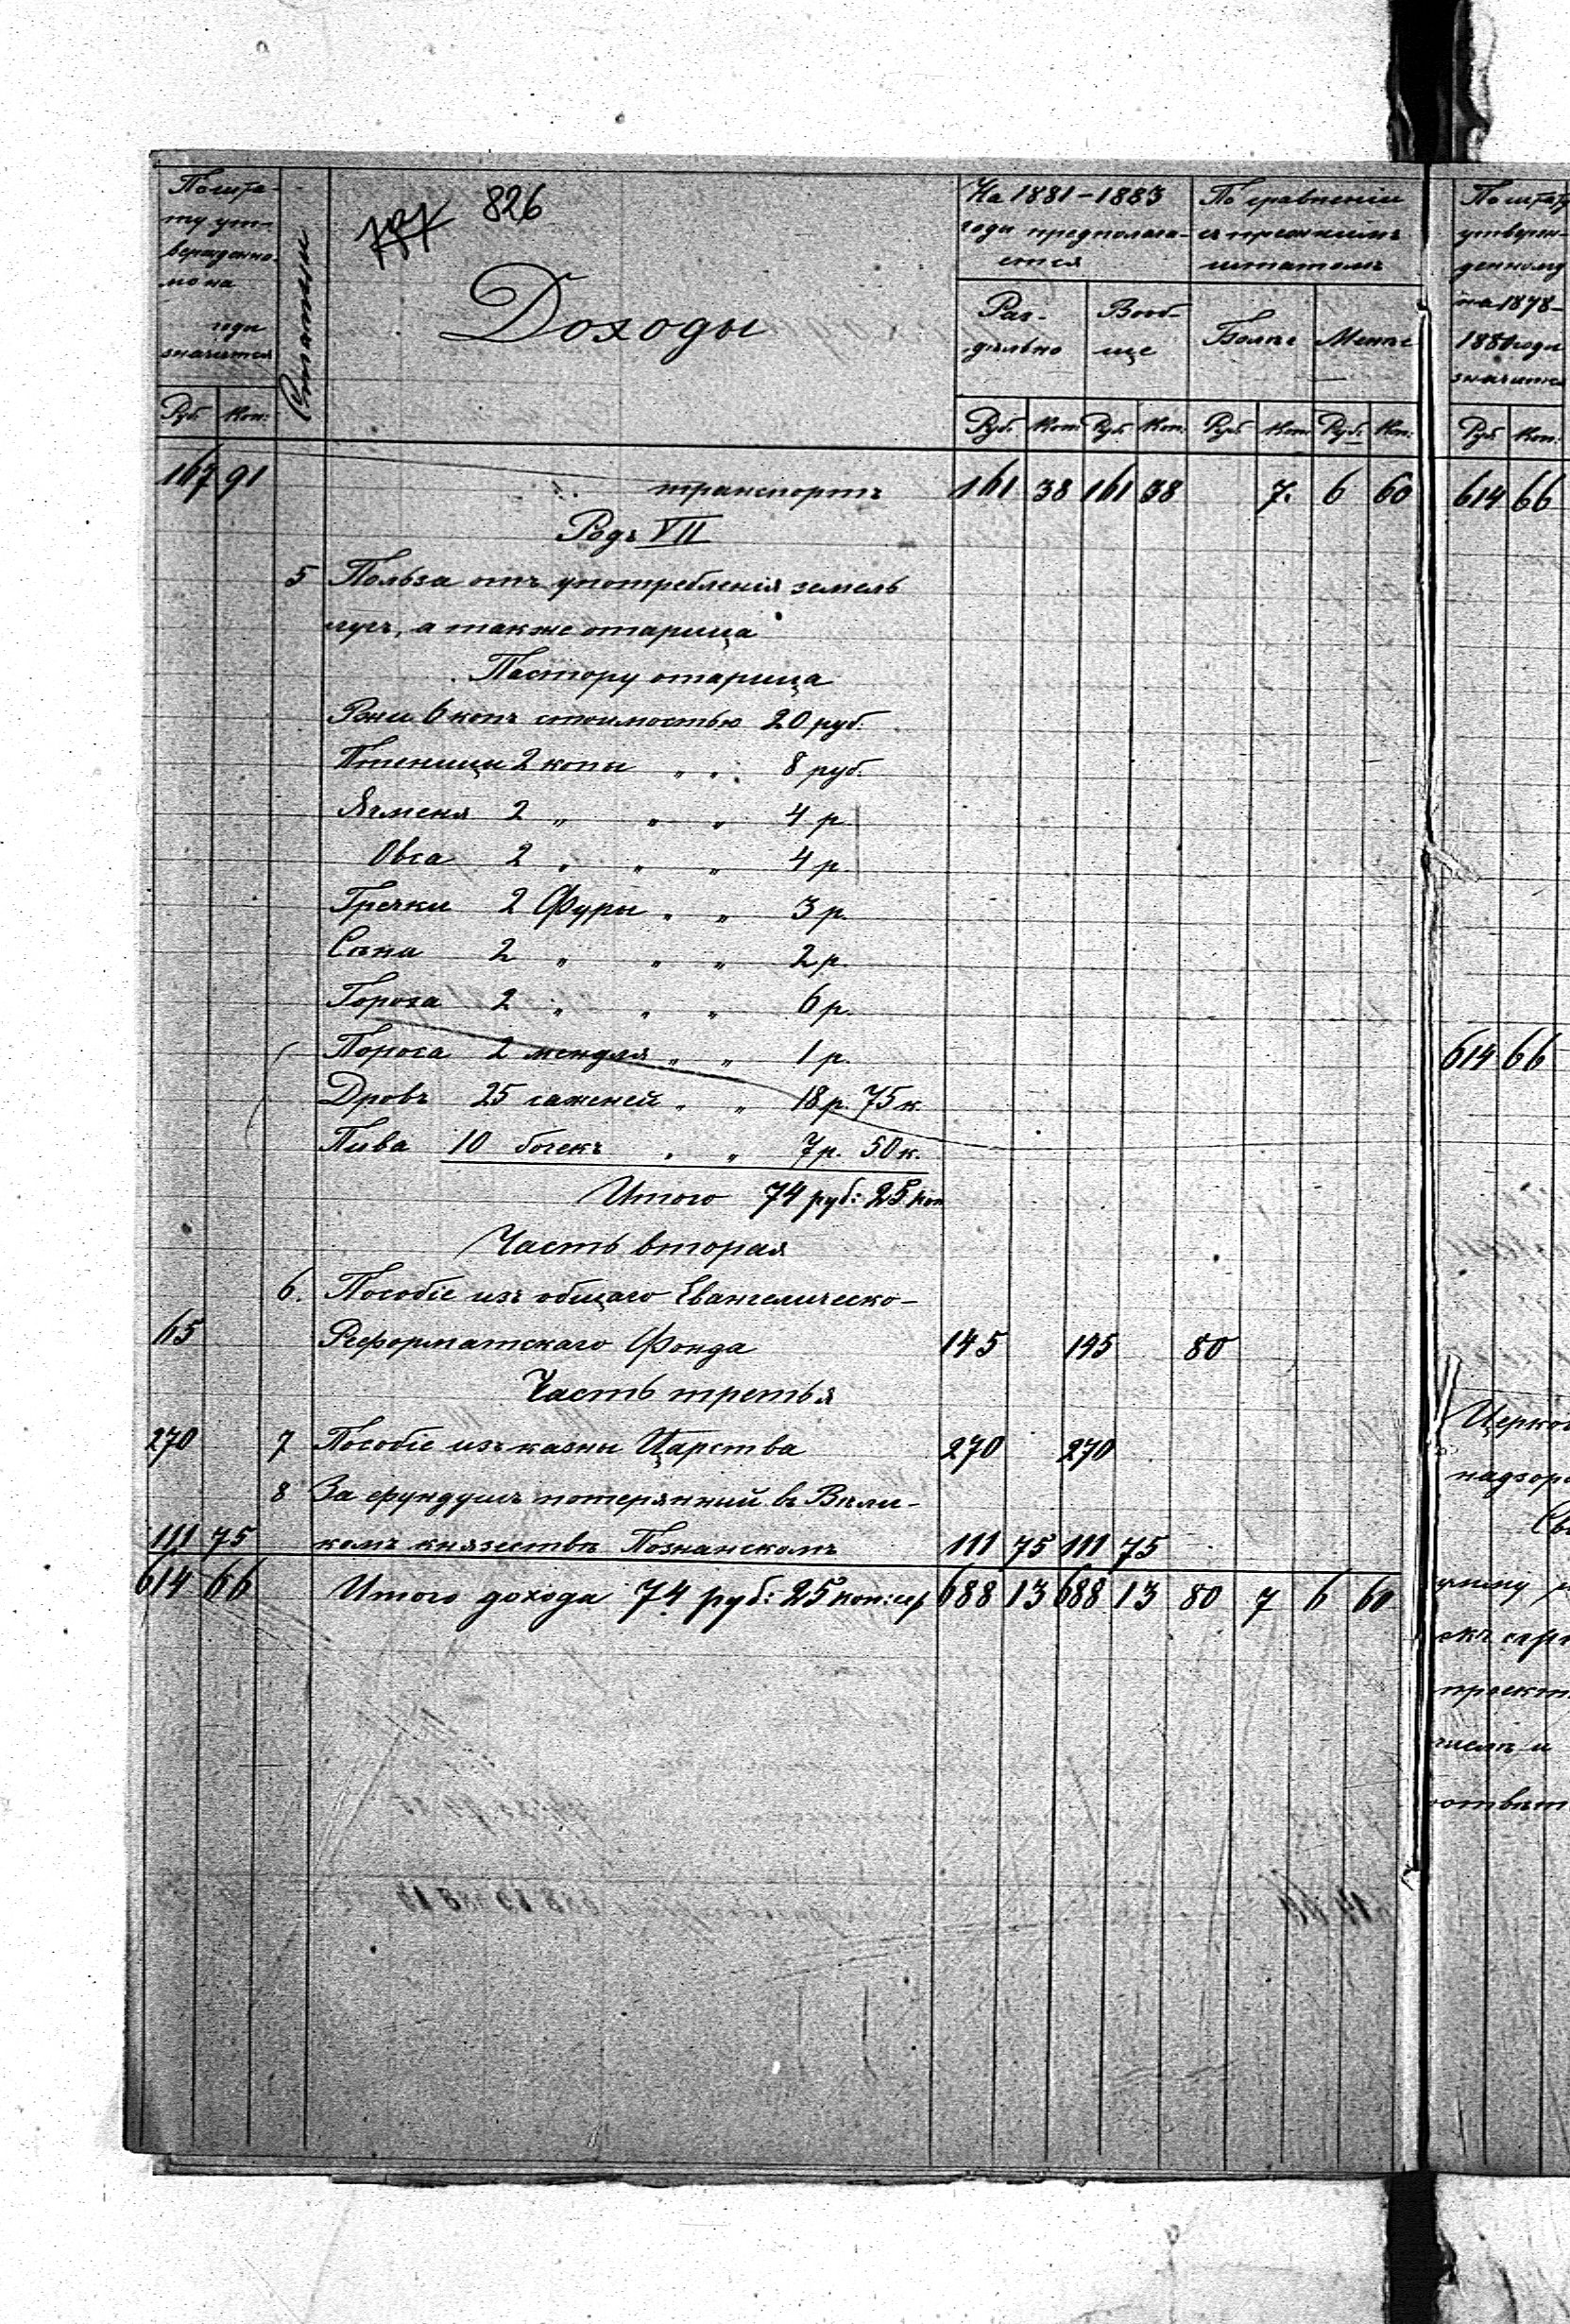 826
737
По шта-
ту ут-
вержденно-
му на
годы
значится
Руб. Коп:
Статьи
Доходы
На 1881-1883
годы предполага-
ется
Раз-
дѣльно
Вооб-
ще
По сравненіи
съ прежнимъ
штатомъ
Болѣе Менѣе
Руб. Коп: Руб. Коп: Руб. Коп. Руб: Коп:
167 91 транспортъ 161 38 161 38 7. 6 60
Родъ VII
5 Польза отъ употребленія земель
луг, а также отарица
Пастору отарица
Ржи 6 копъ стоимостью 20 руб.
Пшеницы 2 копы „ „ 8 руб.
Ячменя 2 „ „ „ 4 р.
Овса 2 „ „ „ 4 р.
Гречки 2 Фуры „ „ 3 р.
Сѣна 2 „ „ „ 2 р.
Гороха 2 „ „ „ 6 р.
Пороса 2 менделя „ „ 1 р.
Дровъ 25 саженей „ „ 18 р. 75 к.
Пива 10 бочекъ „ „ 7 р. 50 к.
Итого 74 руб: 25 коп
Часть вторая
6. Пособіе изъ общаго Евангелическо-
65 Реформатскаго Фонда 145 145 80
Часть третья
270 7 Пособіе изъ казны Царства 270 270
8 За фундушъ потерянный въ Вели-
111 75 комъ княжествѣ Познанскомъ 111 75 111 75
614 66 Итого дохода 74 руб: 25 коп: сер 688 13 688 13 80 7 6 60
По штату
утвержен-
денному
на 1878-
1880 годы
значится
Руб Коп:
614 66
614 66
Церков
надзора
проект